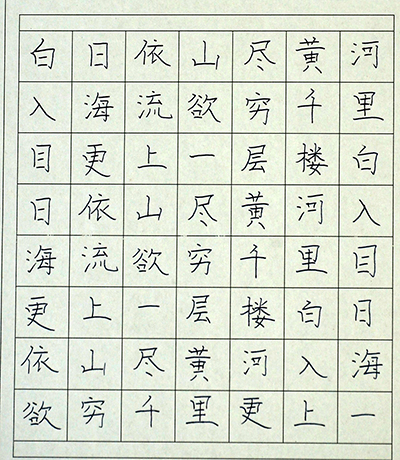 白日依山尽黄河
入海流欲穷千里
目更上一层楼白
日依山尽黄河入
海流欲穷千里目
更上一层楼白日
依山尽黄河入海
欲穷千里更上一